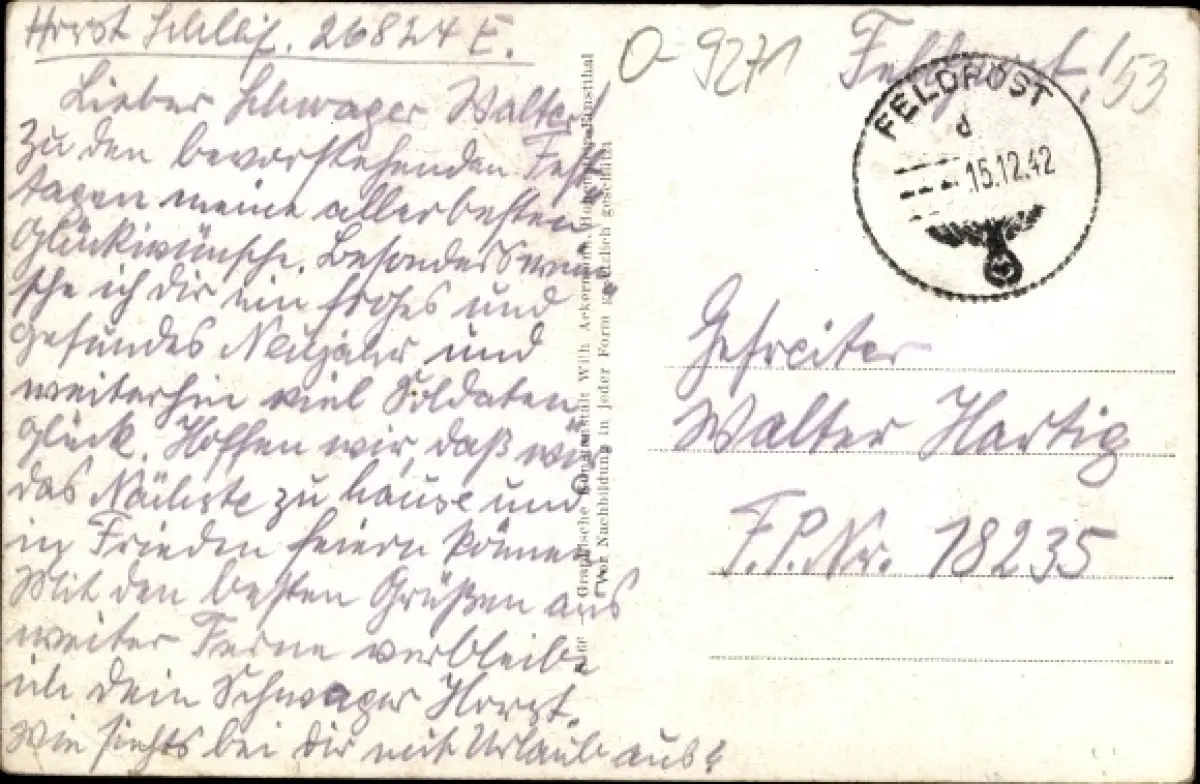 Horst 26824 E.
Lieber Schwager Walter!
Zu den bevorstehenden Fest-
tagen meine allerbesten
Glückwünsche. Besonders wün-
sche ich dir ein frohes und
gesundes Neujahr und
weiterhin viel Soldaten-
glück. Hoffen wir, daß wir
das Nächste zu hause und
in Frieden feiern können
Mit den besten Grüßen aus
weiter Ferne verbleibe
ich dein Schwager Horst.
Wie siehts bei dir mit Urlaub aus?
Graphische Kunstanstalt With
Vor Nachbildung in jeder Form gesetzlich geschützt
O-9271
Feldpost!
53
FELDPOST
d
15.12.42
Gefreiter
Walter Hartig
F.P.Nr. 18235